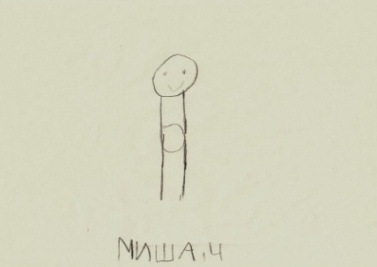 МИША, Ч